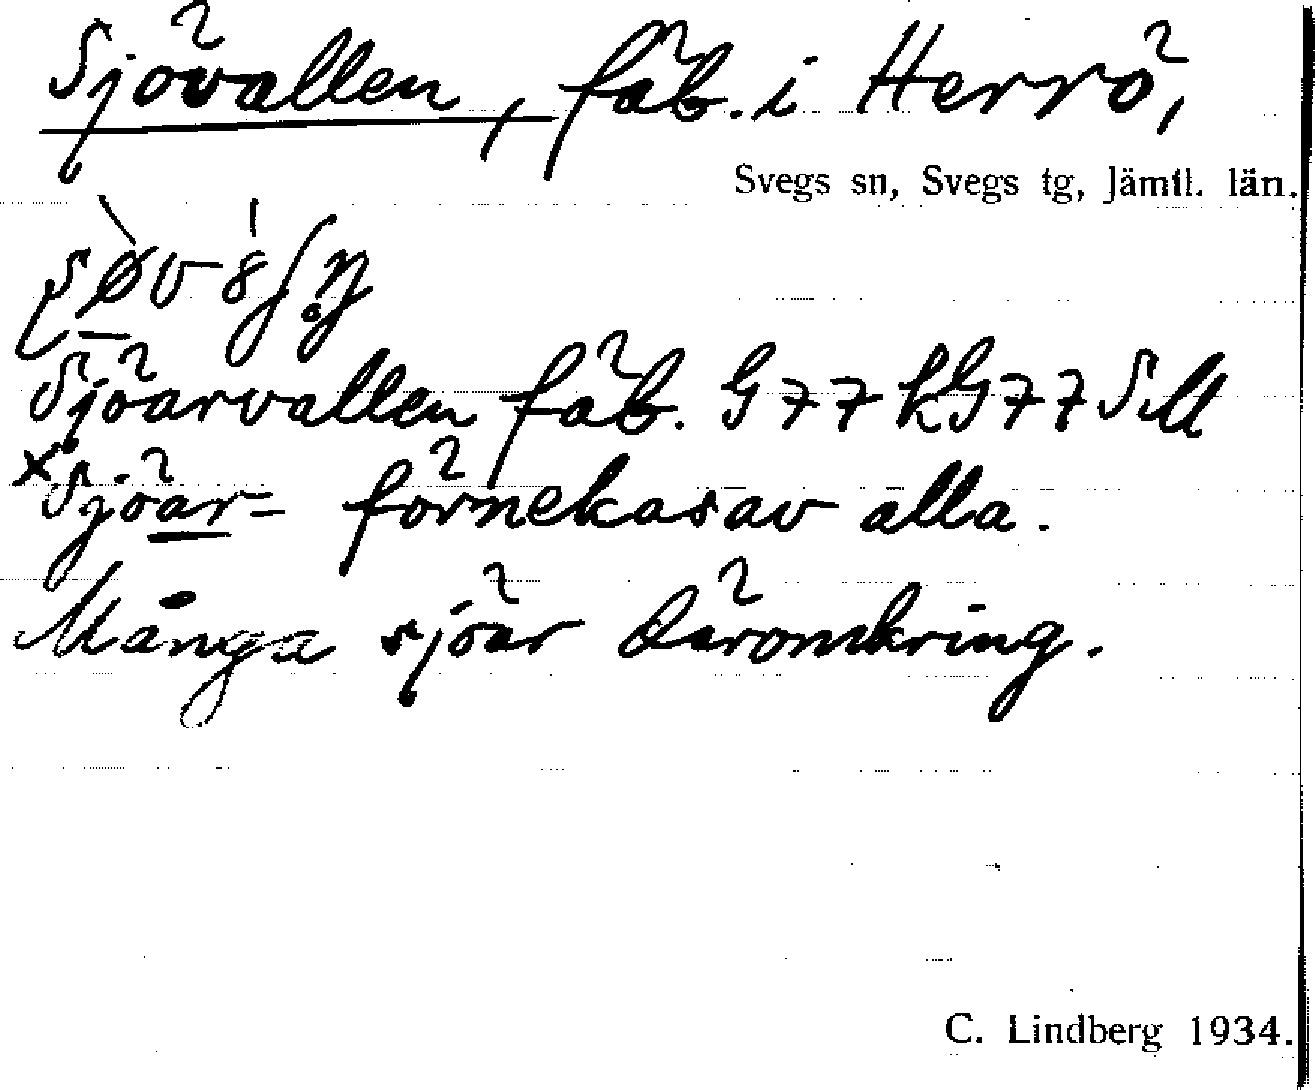 Sjövallen, fäb. i Herrö,
Svegs sn, Svegs tg, Jämtl. län.
Sjöarvallen fäb. G77 kG77 SM
×Sjöar= förnekas av alla.
Många sjöar däromkring.
C. Lindberg 1934.